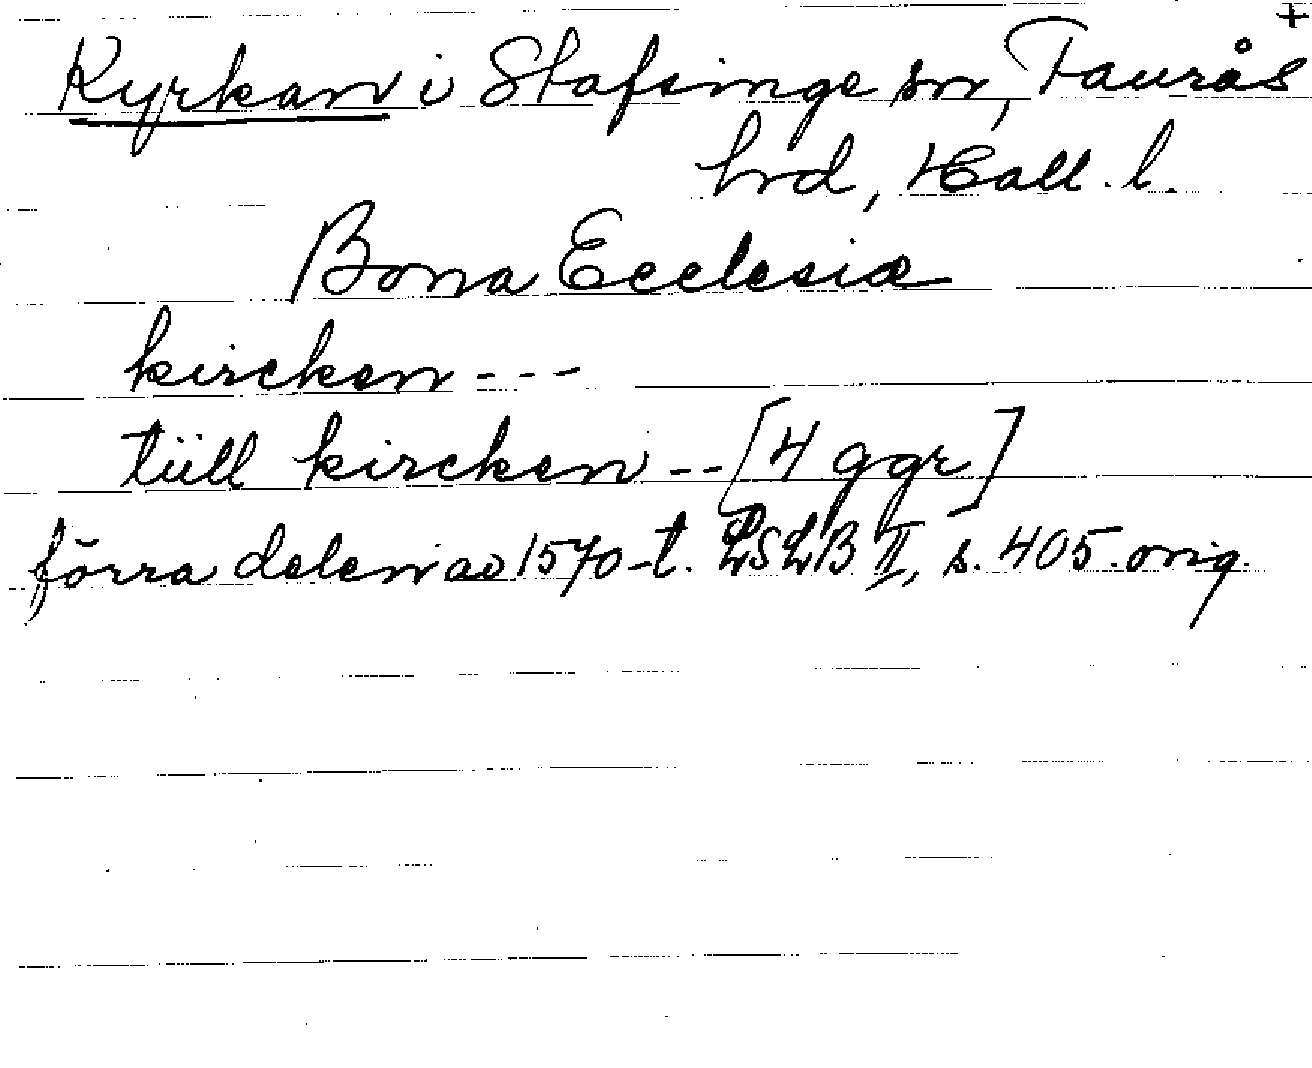 +
Kyrkan i Stafsinge sn, Faurås
hrd, Hall. l.
Bona Ecclesiæ
kircken - - -
tüll kircken - - [4 ggr]
förra delen av 1570-t. LSLB II, s. 405. orig.